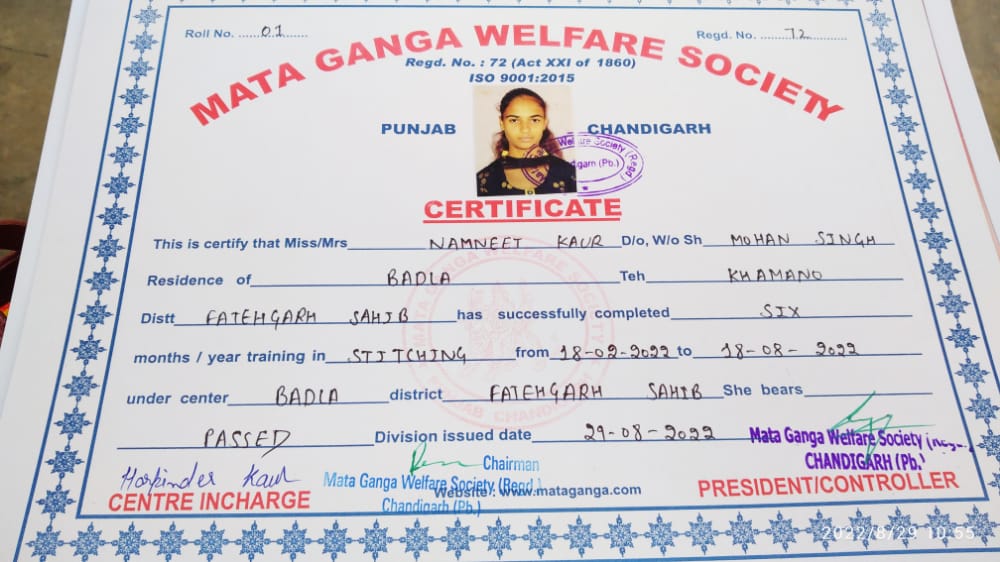 Roll No. ......01........ Regd. No. ......72..........
MATA GANGA WELFARE SOCIETY
Regd. No. : 72 (Act XXI of 1860)
ISO 9001:2015
PUNJAB CHANDIGARH
Welfare Society (Regd.)
CERTIFICATE
This is certify that Miss/Mrs NAMNEET KAUR D/o, W/o Sh MOHAN SINGH
Residence of BADLA Teh KHAMANO
Distt FATEHGARH SAHIB has successfully completed SIX
months / year training in STITCHING from 18-02-2022 to 18-08-2022
under center BADLA district FATEHGARH SAHIB She bears
PASSED Division issued date 29-08-2022
MATA GANGA WELFARE SOCIETY
PUNJAB CHANDIGARH
Harpinder Kaur
CENTRE INCHARGE
Chairman
Mata Ganga Welfare Society (Regd.)
Chandigarh (Pb.)
Website: www.mataganga.com
Mata Ganga Welfare Society (Regd.
CHANDIGARH (Pb.)
PRESIDENT/CONTROLLER
2022/8/29 10:55